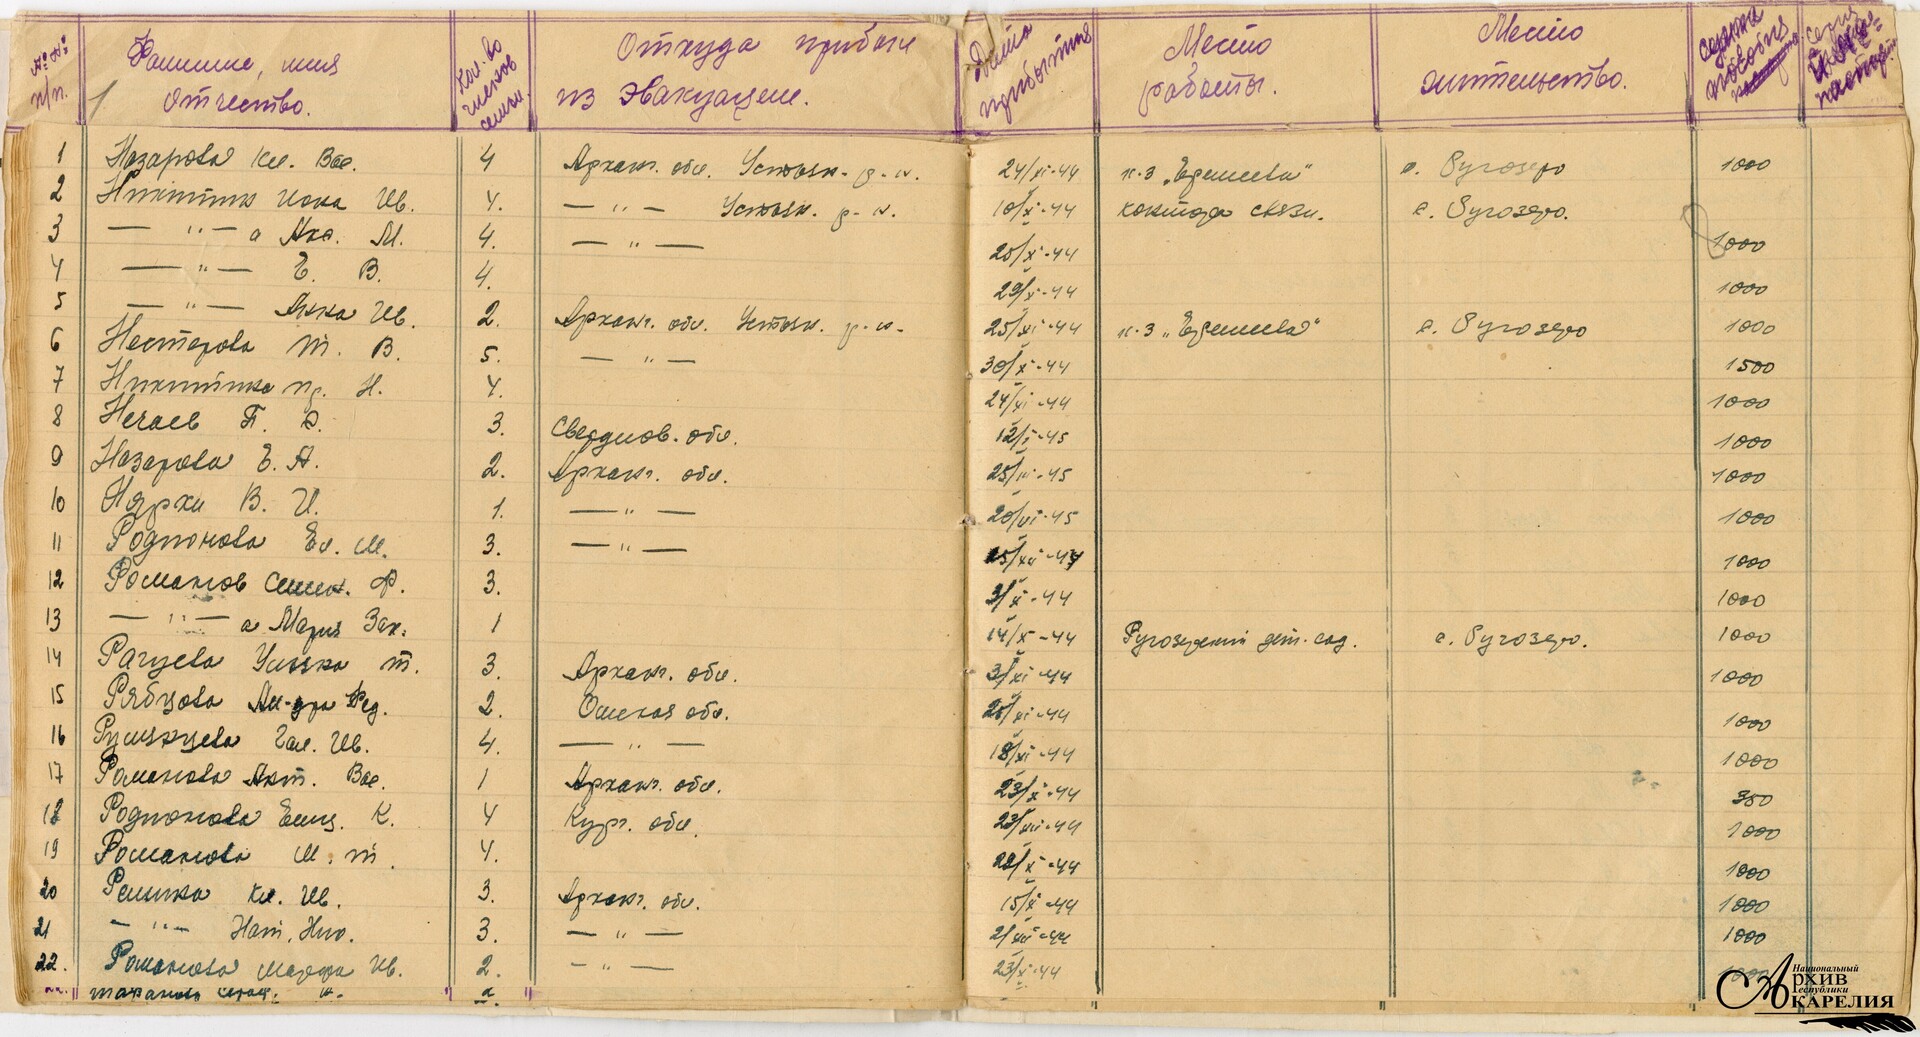 №№ п/п. Фамилие, имя отчество. Кол-во членов семьи. Откуда прибыл из эвакуации. Дата прибытия Место работы. Место жительства. сумма пособия серия паспорт.
1 Назарова Кл. Вас. 4 Арханг. обл. Устьян. р-н. 24/XI-44 к-з „Еремеева" с. Ругозеро 1000
2 Никитин Иона Ив. 4. — " — Устьян. р-н. 10/X-44 контора связи. с. Ругозеро.
3 — " — а Анас. М. 4. — " — 20/X-44 1000
4 — " — Е. В. 4. 29/X-44 1000
5 — " — Анна Ив. 2. Арханг. обл. Устьян. р-н. 25/XI-44 к-з „Еремеева" с. Ругозеро 1000
6 Нестерова Т. В. 5. — " — 30/X-44 1500
7 Никитина Пр. Н. 4. 24/XI-44 1000
8 Нечаев П. Д. 3. Свердлов. обл. 12/I-45 1000
9 Назарова Е. А. 2. Арханг. обл. 25/IV-45 1000
10 Нярхи В. И. 1. — " — 20/VI-45 1000
11 Родионова Ел. М. 3. — " — 15/XII-44 1000
12 Романов Семен. Ф. 3. 3/X-44 1000
13 — " — а Мария Зах. 1 14/X-44 Ругозерский дет. сад. с. Ругозеро. 1000
14 Рагуева Ульяна Т. 3. Арханг. обл. 3/XI-44 1000
15 Рябцова Ал-дра Фед. 2. Омская обл. 20/XI-44 1000
16 Гал. Ив. 4. — " — 18/XI-44 1000
17 Романова Акт. Вас. 1 Арханг. обл. 23/X-44 350
18 Родионова Елиз. К. 4 Кург. обл. 23/XII-44 1000
19 Романова М. Т. 4. 22/X-44 1000
20 Кл. Ив. 3. Арханг. обл. 15/X-44 1000
21 — " — Нат. Ник. 3. — " — 2/XII-44 1000
22. Романова Марфа Ив. 2. — " — 23/X-44
Национальный
Архив
Республики
Карелия